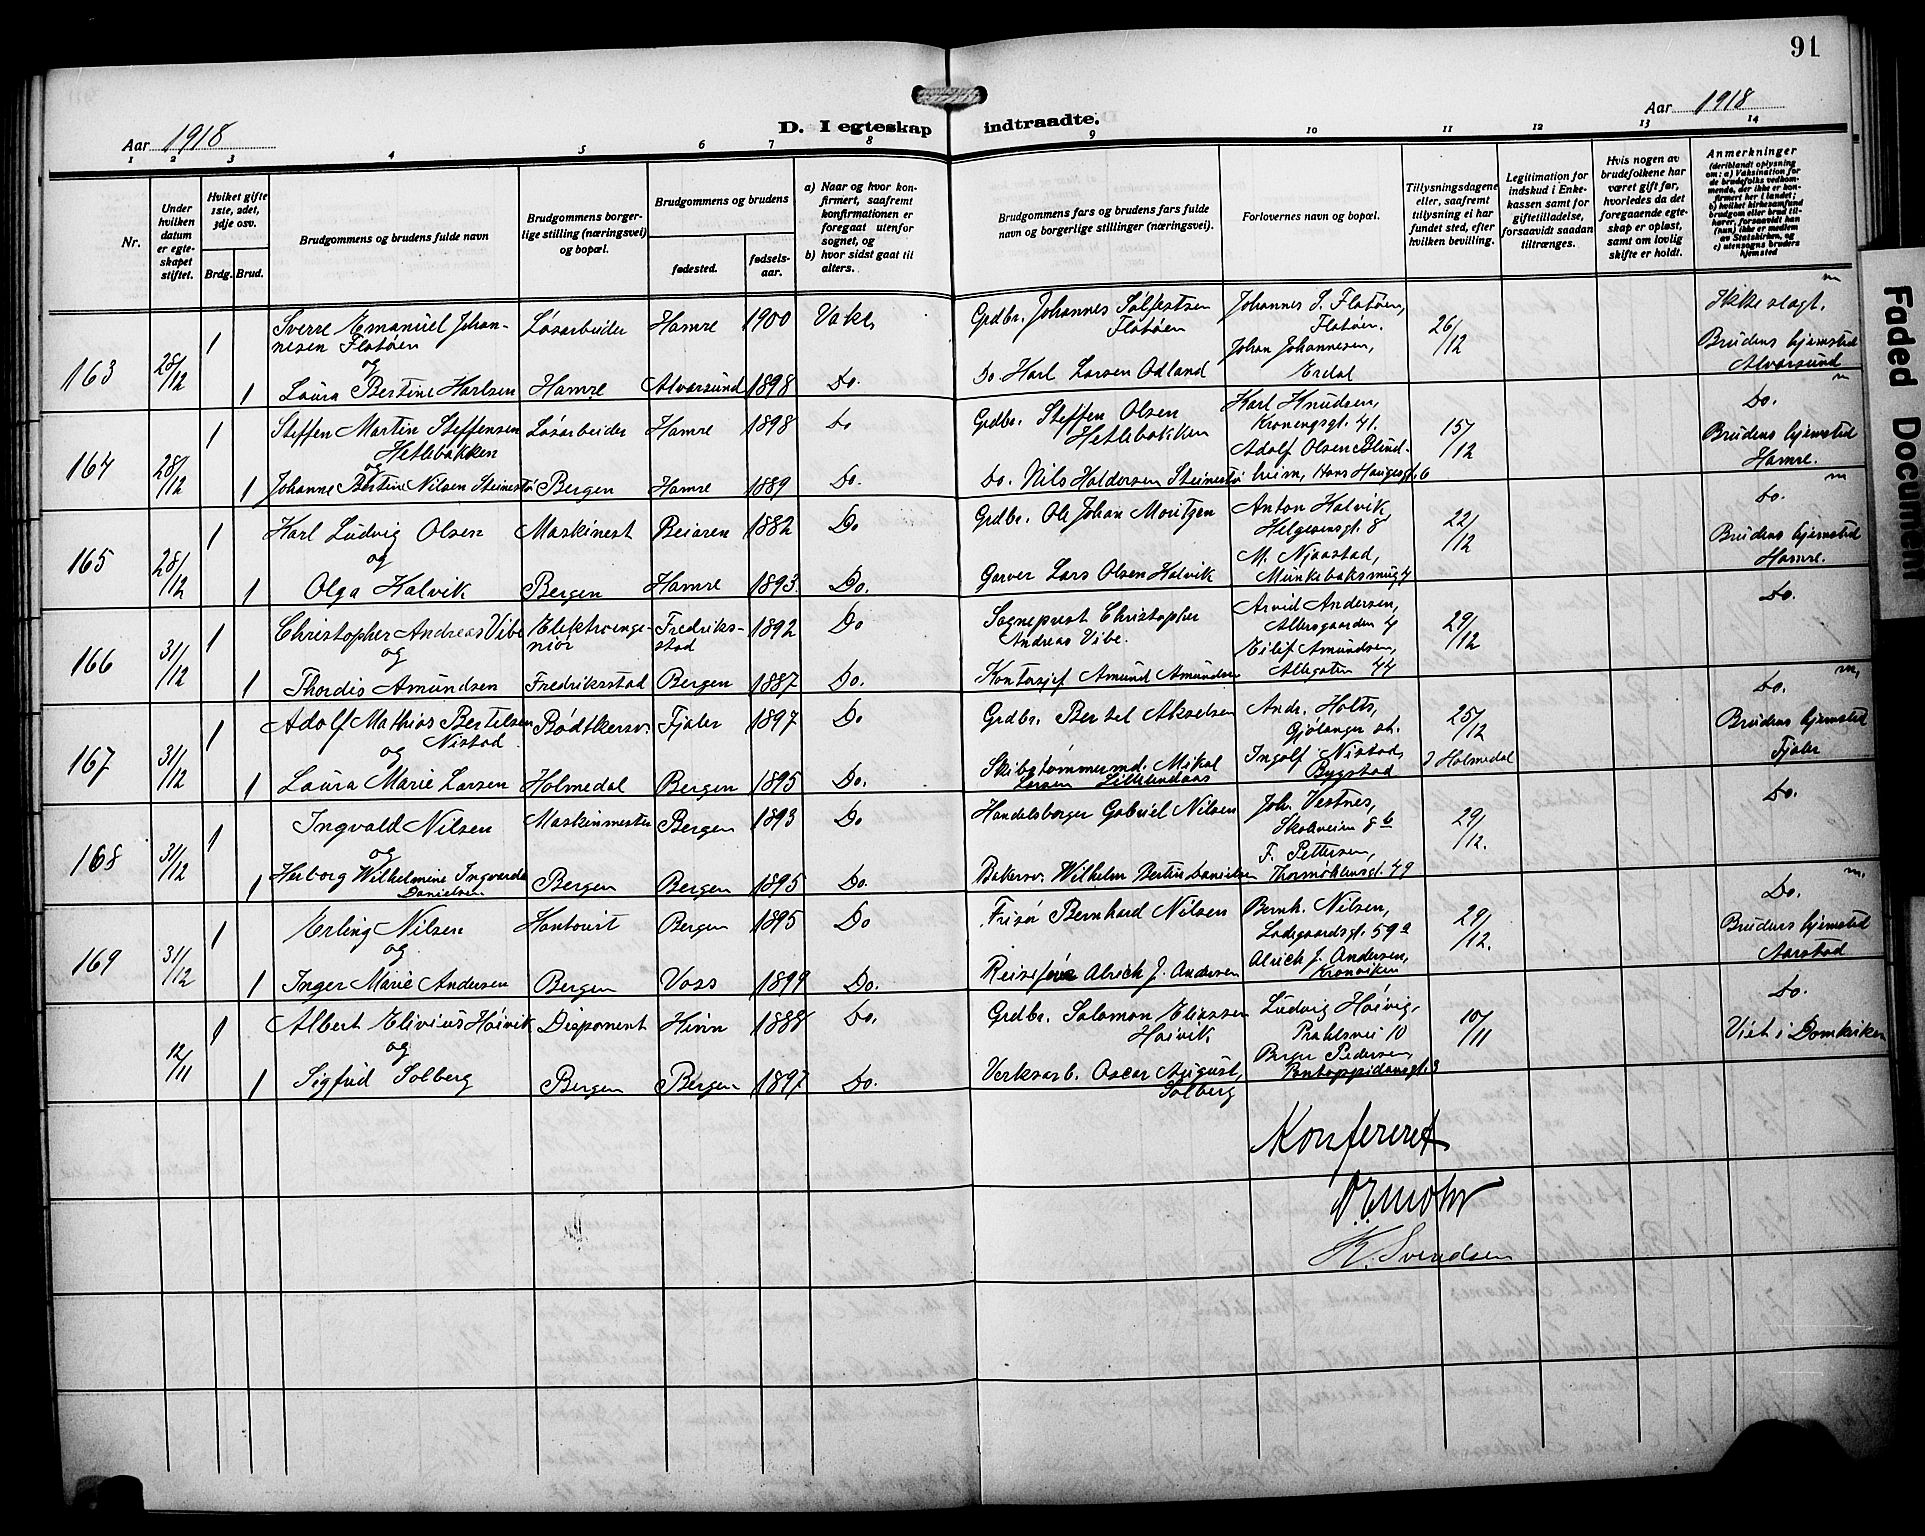 91
Aar 1918
D. I egteskap indtraadte.
Aar 1918
1 2 3 4 5 6 7 8 9 10 11 12 13 14
Nr.
Under hvilken datum er egteskapet stiftet.
Hvilket gifte 1ste, 2det, 3dje osv.
Brdg. Brud.
Brudgommens og brudens fulde navn
Brudgommens borgerlige stilling (næringsvei) og bopæl.
Brudgommens og brudens
fødested.
fødselsaar.
a) Naar og hvor konfirmert, saafremt konfirmationen er foregaat utenfor sognet, og
b) hvor sidst gaat til alters.
Brudgommens fars og brudens fars fulde navn og borgerlige stillinger (næringsvei).
Forlovernes navn og bopæl.
Tillysningsdagene eller, saafremt tillysning ei har fundet sted, efter hvilken bevilling.
Legitimation for indskud i Enkekassen samt for giftetilladelse, forsaavidt saadan tiltrænges.
Hvis nogen av brudefolkene har været gift før, hvorledes da det foregaaende egteskap er opløst, samt om lovlig skifte er holdt.
Anmerkninger
(deriblandt oplysning om: a) Vaksination for de brudefolks vedkommende, der ikke er konfirmert her i landet; b) hvilket kirkesamfund brudgom eller brud tilhører, forsaavidt han (hun) ikke er medlem av Statskirken, og c) utensogns bruders hjemsted
163 28/12 1 Sverre Emanuel Johannesen Flatøen Løsarbeider Hamre 1900 Grdbr. Johannes Sølfestsen Flatøen Johannes S. Flatøen, Flatøen. 26/12 Ikke slegt.
og Johan Johannesen, Brudens hjemsted
1 Laura Bertine Karlsen Hamre Alversund 1898 Do. Do Karl Larsen Odland Erdal Alversund
164 28/12 1 Steffen Martin Steffensen Hetlebakken Løsarbeider Hamre 1898 Do Grdbr. Steffen Olsen Hetlebakken Karl Knudsen, Kroningsgt. 41. 15/12 Do.
og Adolf Olsen Blindheim, Hans Haugesgt. 6 Brudens hjemsted
1 Johanne Bertine Nilsen Steinestø Bergen Hamre 1889 Do. Do. Nils Haldorsen Steinestø Hamre.
165 28/12 1 Karl Ludvig Olsen Maskinest Beiaren 1882 Do Grdbr. Ole Johan Moritzen Anton Halvik, Helgesensgt. 8 22/12 Do.
og M. Njaastad, Brudens hjemsted
1 Olga Halvik Bergen Hamre 1893. Do. Garver Lars Olsen Halvik Munkebæksmug 4 Hamre.
166 31/12 1 Christopher Andreas Vibe Elektroingeniør Fredriksstad 1892 Do Sogneprest Christopher Andreas Vibe. Arvid Andersen, 29/12 Do.
og Eilif Amundsen,
1 Thordis Amundsen Fredriksstad Bergen 1887 Do. Kontorsjef Amund Amundsen Allegaten 44
167 31/12 1 Adolf Mathias Bertelsen Nistad Bødtkersv. Fjaler 1897 Do Grdbr. Bertel Akselsen Andr. Holts, Gjølanger st. 25/12 Do.
og Ingolf Nistad, Brudens hjemsted
1 Laura Marie Larsen Holmedal Bergen 1895 Do. Skibstømmermd. Mikal Larsen Bygstad I Holmedal Fjaler
168 31/12 1 Ingvald Nilsen Maskinmester Bergen 1893 Do Handelsborger Gabriel Nilsen Joh. Vestnes, Skolveien 8 b 29/12. Do.
og F. Pettersen,
1 Herborg Wilhelmine Ingvarda Danielsen Bergen Bergen 1895 Do. Bakersv. Wilhelm Bertin Danielsen Thormøhlensgt. 49
169 31/12 1 Erling Nilsen Kontorist Bergen 1895 Do Frisør Bernhard Nilsen Bernh. Nilsen, Ladegaardsgt. 59 a 29/12. Do.
og Alrich J. Andersen, Brudens hjemsted
1 Inger Marie Andersen Bergen Voss 1899 Do. Alrich J. Andersen Kronviken Aarstad
12/11 1 Albert Elivius Høivik Disponent Hinn 1888 Do. Grdbr. Salomon Eliassen Høivik Ludvig Høivig, Prahlsvei 10 10/11 Do.
og Birger Pedersen, Viet i Domkirken
1 Sigfrid Solberg Bergen Bergen 1897 Do. Verksarb. Oscar August, Solberg Pontoppidansgt. 3
Konfereret
D. E. Mohr
K. Svendsen
Faded Document